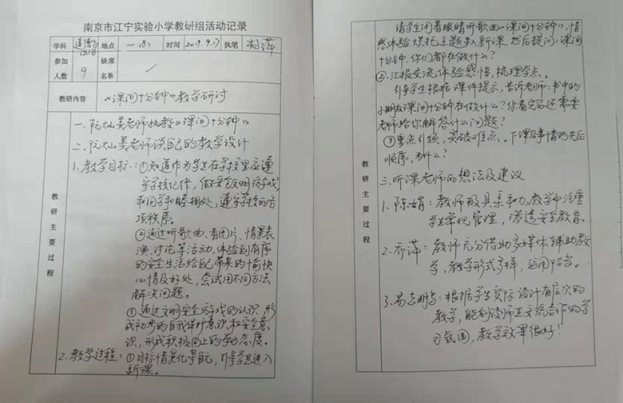 南京市江宁实验小学教研组活动记录
学科 道德与法治 地点 一(3) 时间 2019.9.17 执笔
参加人数 9 缺席名单 /
教研内容 《课间十分钟》教学研讨
教研主要过程
一、阮灿昊老师执教《课间十分钟》
二、阮灿昊老师谈自己的教学设计
1.教学目标:①知道作为学生在学校里应遵
守学校纪律,做文明游戏
和同学和睦相处,遵守学校的各
项秩序。
②通过听歌曲、看图片、情景表
演、讨论等活动,体验到有序
的安全生活给自己带来的愉快
心情及好处,尝试用不同方法
解决问题。
③通过文明安全游戏的认识,形
成初步的自我保护意识和安全意
识,形成积极向上的劳动态度。
2.教学过程:①目标情景化导航,引导学生进入
新课。
教研主要过程
请学生闭着眼睛听歌曲《课间十分钟》,情
感体验烘托主题引入新课,然后提问:课间
十分钟,你们都在做什么?
②汇报交流体验感悟,梳理学点。
引导学生根据课件提示,告诉老师:书中的
小朋友课间十分钟在做什么?你看完后还需要
老师给你解答什么问题?
③重点引领,突破难点、下课后事情的先后
顺序,为什么?
三、听课老师的想法及建议
1.陈娟:教师极具亲和力,教学中注重
学生常规管理,渗透安全教育。
2.乔萍:教师充分借助多媒体辅助教
学,教学形式多样,运用恰当。
3.易志鹏:根据学生实际设计有层次的
教学,能创设师生交流合作的学
习氛围,教学效果很好!